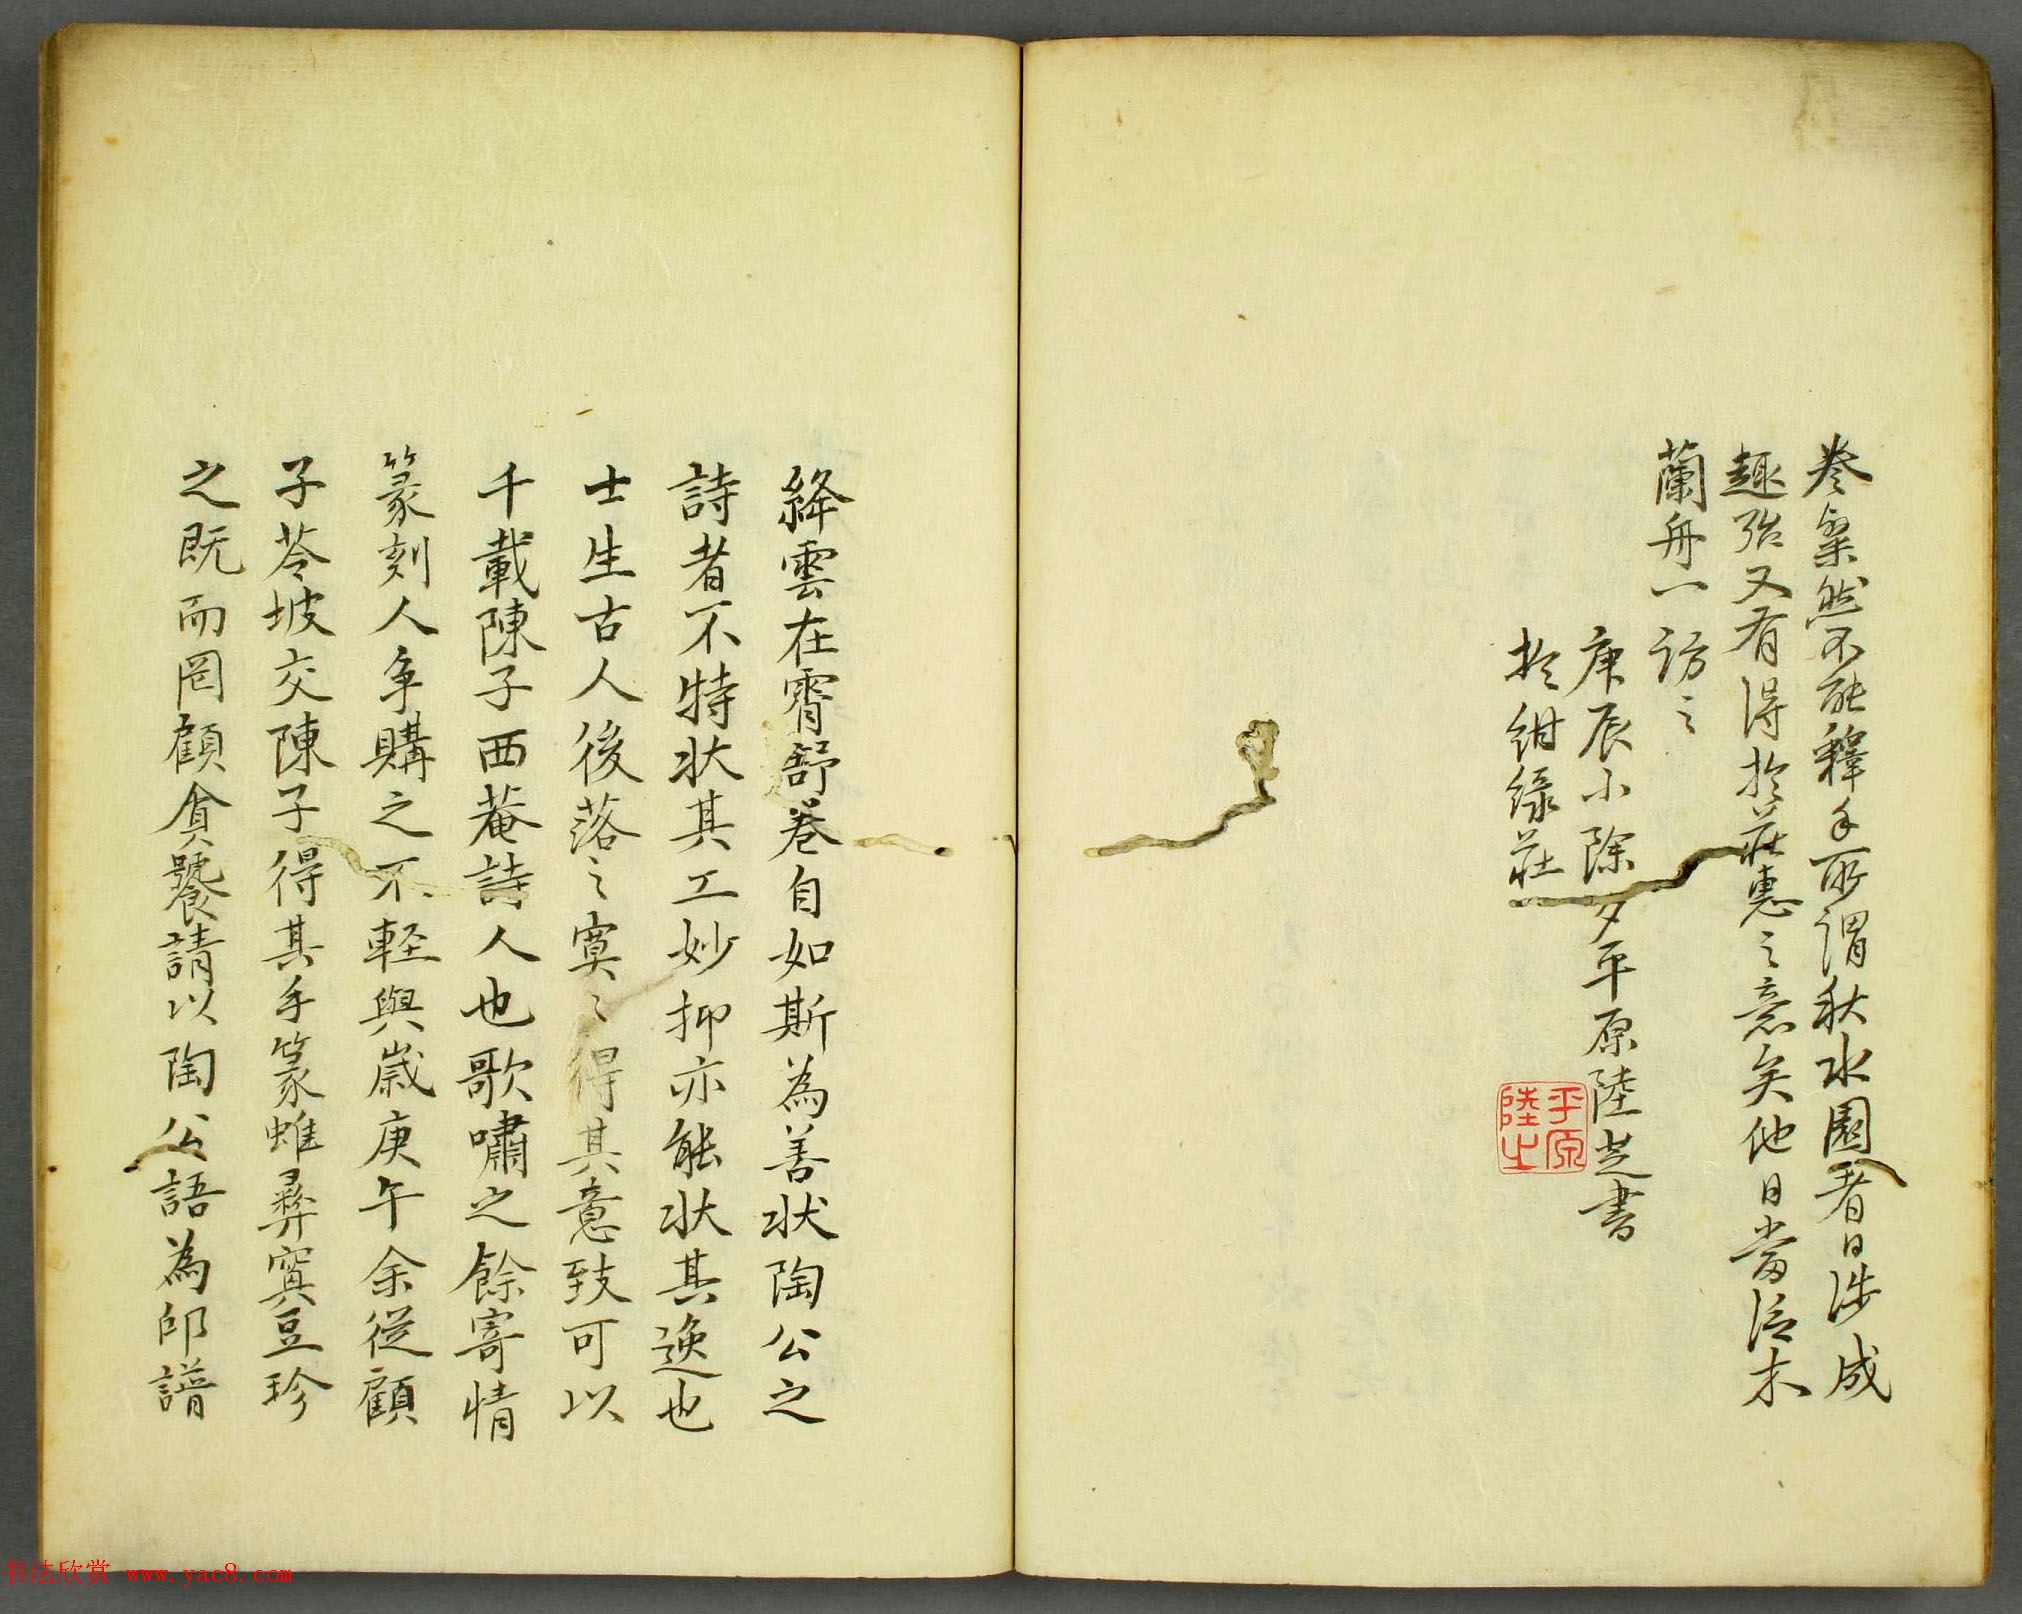 卷粲然不能釋手所謂秋水園者日涉成
趣殆又有得於莊惠之意矣他日當泛木
蘭舟一訪之
庚辰小除夕平原陸芝書
於紺綠莊
平原
陸
絳雲在霄舒卷自如斯為善狀陶公之
詩者不特狀其工妙抑亦能狀其逸也
士生古人後落之寞之得其意致可以
千載陳子西菴詩人也歌嘯之餘寄情
篆刻人争購之不輕與歲庚午余從顧
子苓坡交陳子得其手篆蜼彞寘豆珍
之既而罔顧貪饕請以陶公語為印譜
书法欣赏 www.yac8.com